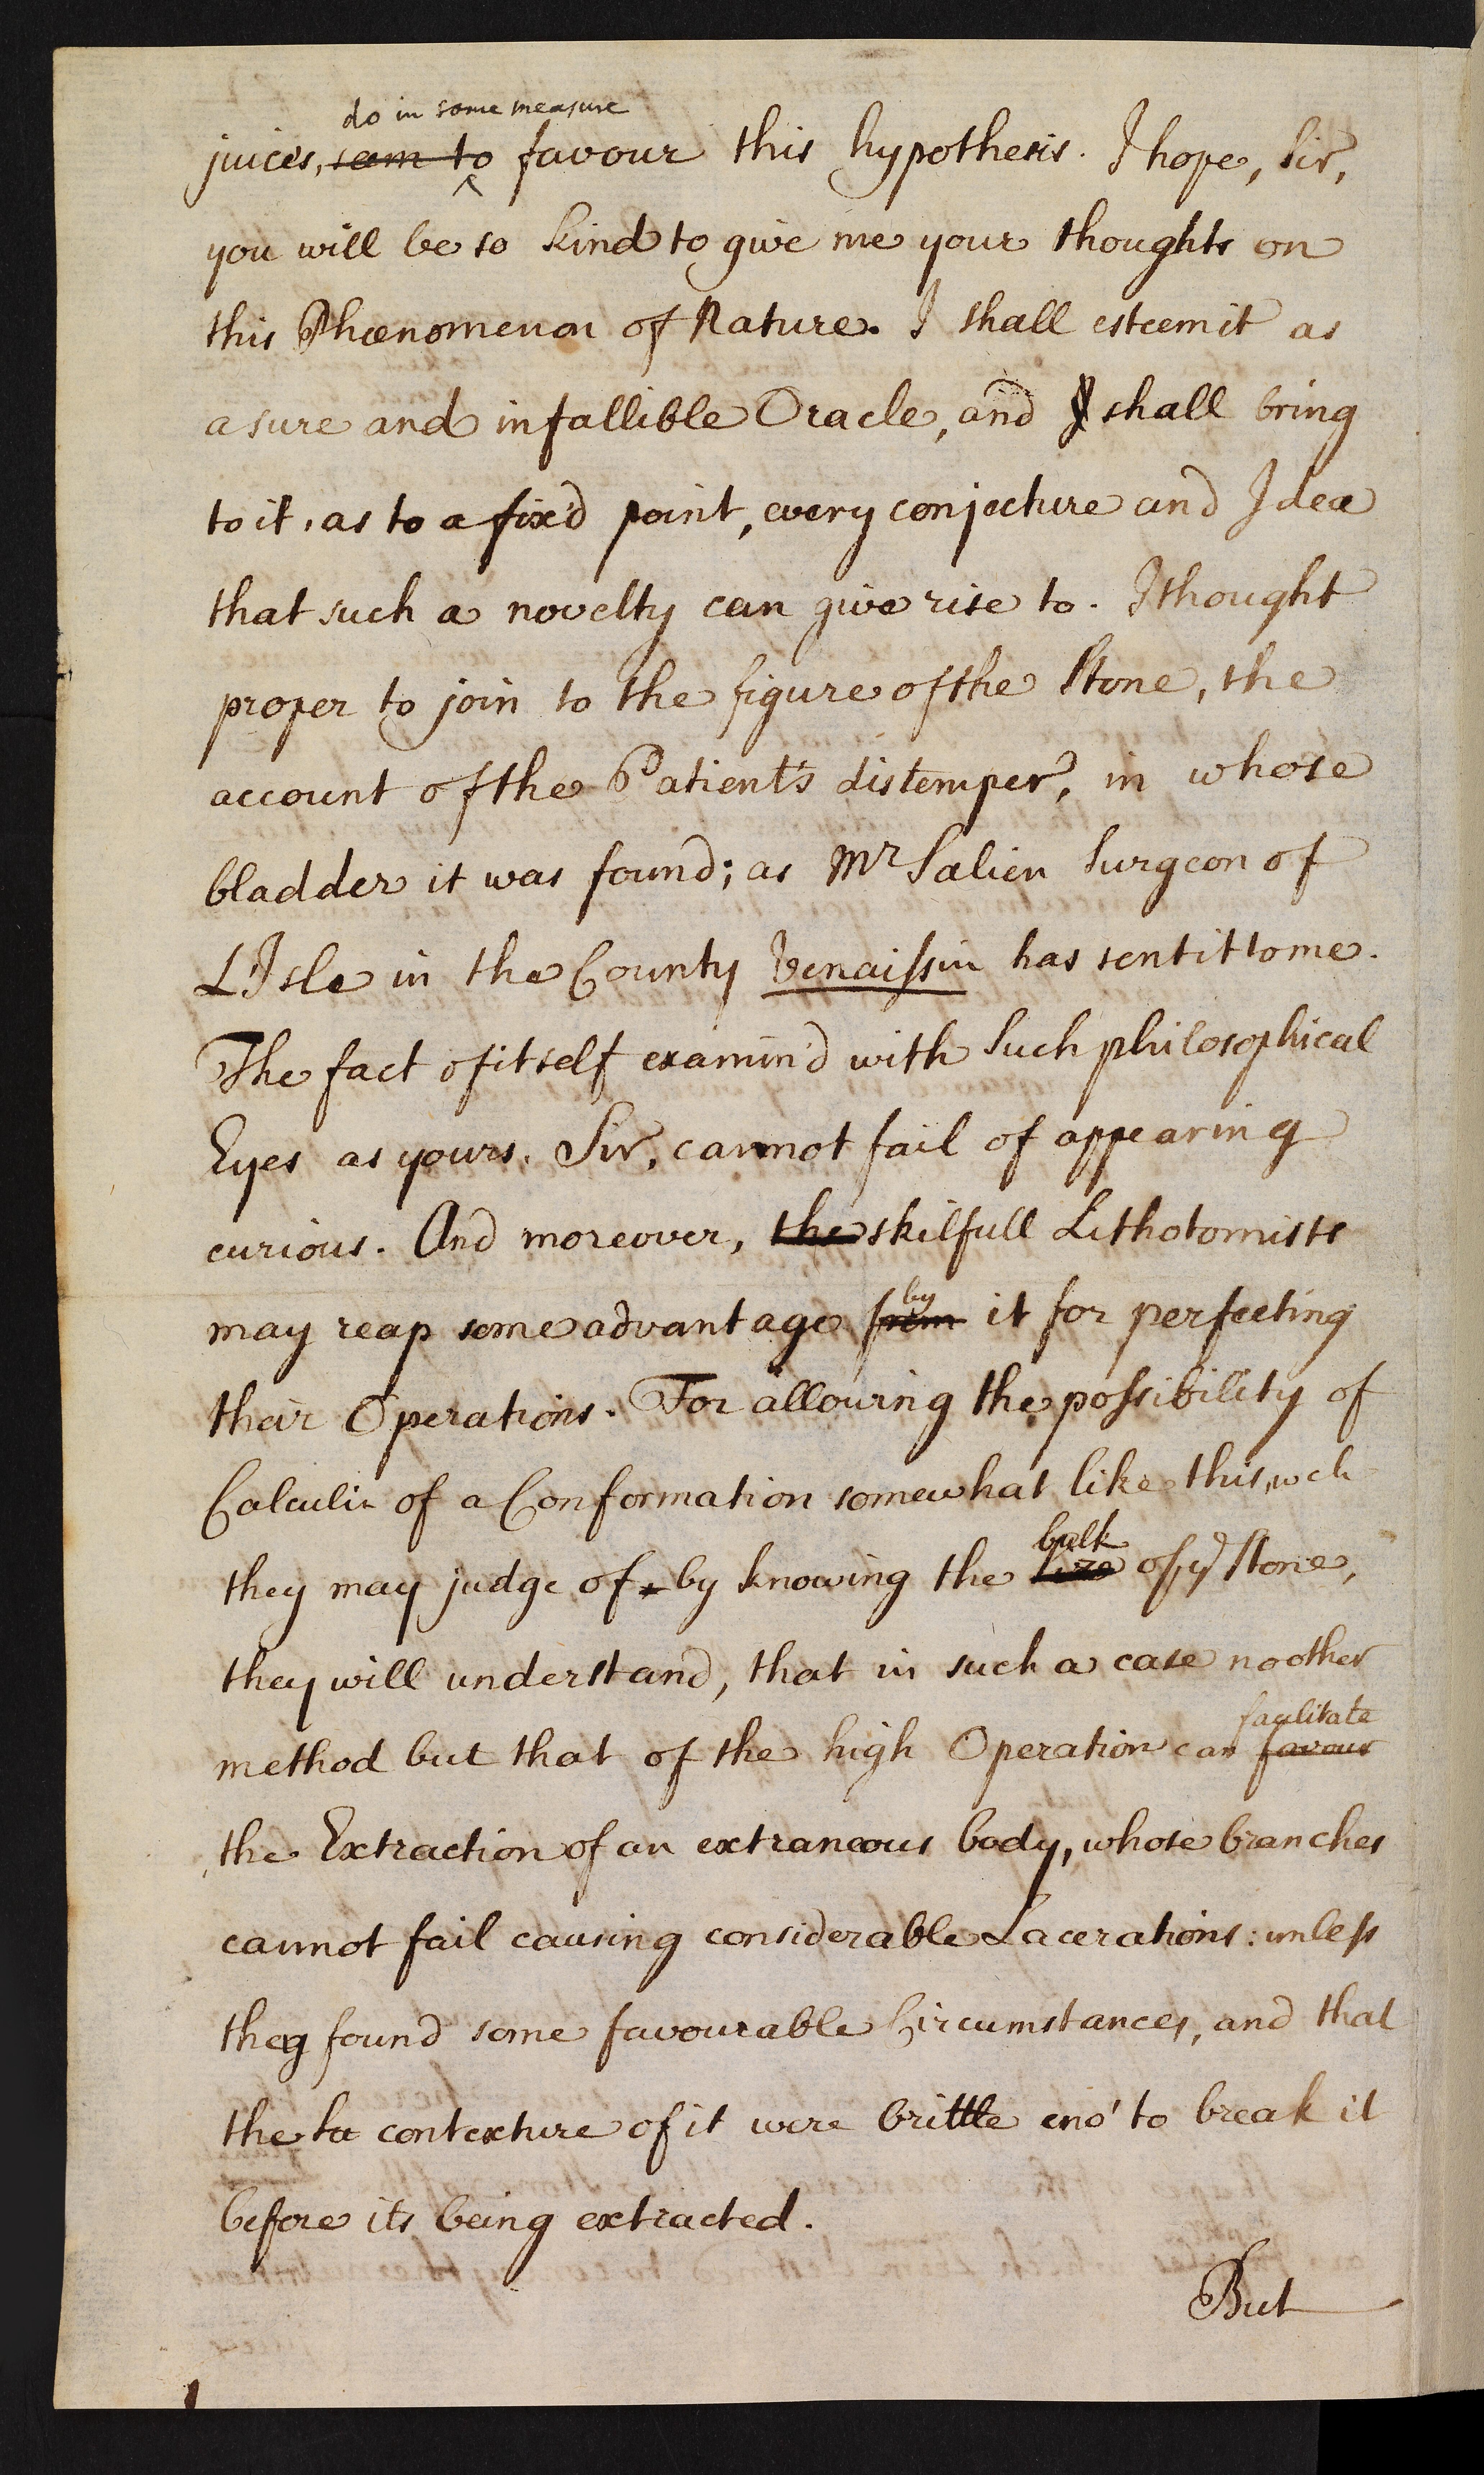 do in some measure
juices, seem to favour this hypothesis. I hope, Sir,
you will be so kind to give me your thoughts on
this Phœnomenon of Nature. I shall esteem it as
a sure and infallible Oracle, and I shall bring
to it, as to a fix'd point, every conjecture and Idea
that such a novelty can give rise to. I thought
proper to join to the figure of the Stone, the
account of the Patient's distemper, in whose
bladder it was found; as Mr Salien Surgeon of
L'Isle in the County Venaissin has sent it to me.
The fact of itself examin'd with Such philosophical
Eyes as yours, Sir, cannot fail of appearing
curious. And moreover, the skilfull Lithotomists
by
may reap some advantage from it for perfecting
their Operations. For allowing the possibility of
Calculi of a Conformation somewhat like this, wch
bulk
they may judge of by knowing the size of ye Stone,
they will understand, that in such a case no other
facilitate
method but that of the high Operation can favour
the Extraction of an extraneous body, whose branches
cannot fail causing considerable Lacerations: unless
they found some favourable Circumstances, and that
the contexture of it were brittle eno' to break it
before its being extracted.
But